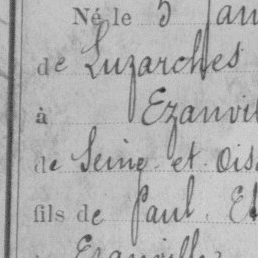 Né le 5 Jan
de Luzarches
à Ezanvil
de Seine-et-Ois
fils de Paul. E
Ezanville